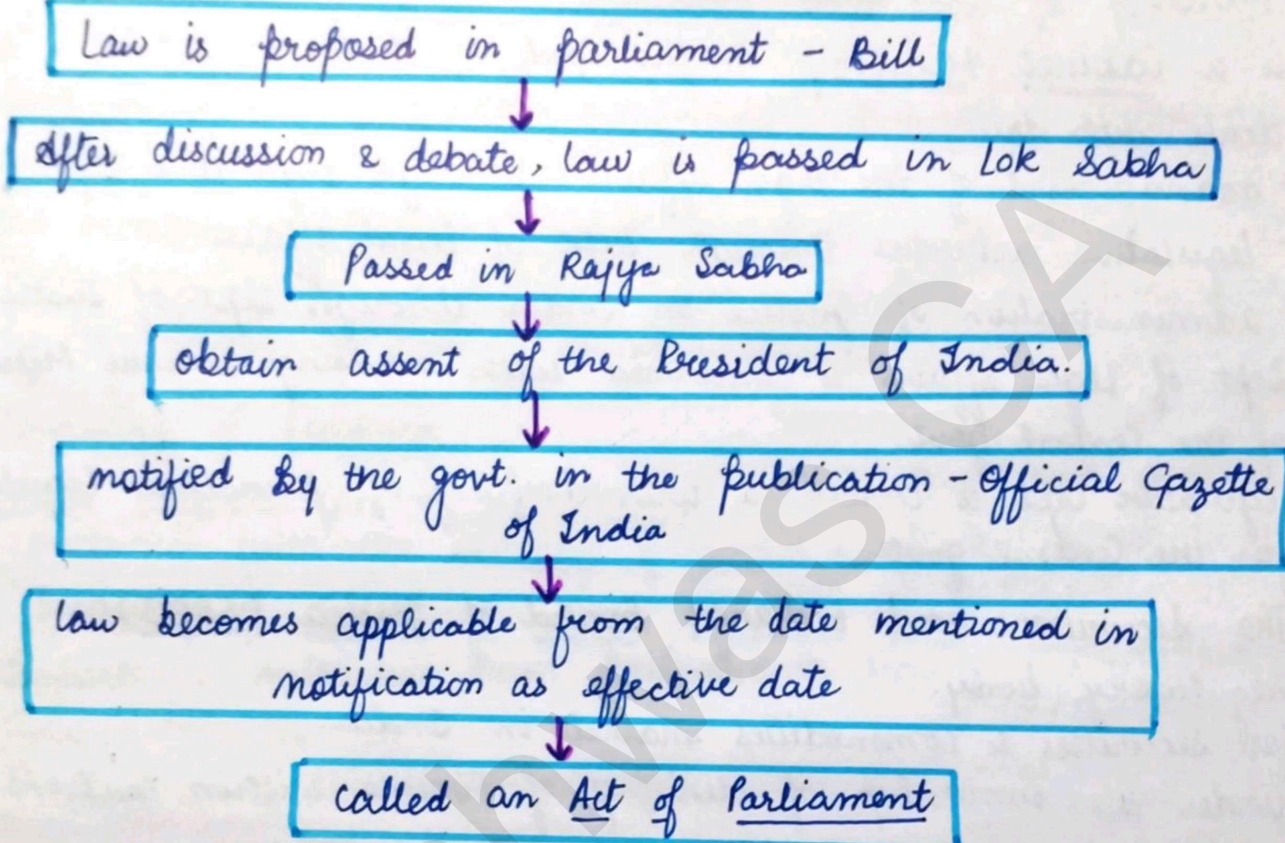 Law is proposed in parliament - Bill
After discussion & debate, law is passed in Lok Sabha
Passed in Rajya Sabha
obtain assent of the President of India.
notified by the govt. in the publication - Official Gazette
of India
law becomes applicable from the date mentioned in
notification as effective date
called an Act of Parliament
CA